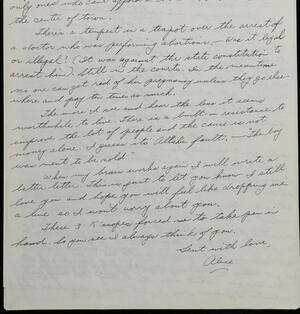 only ones who
the center of town.
There's a tempest in a teapot over the arrest of
a doctor who was performing abortions — Was it legal
or illegal? (It was against the state constitution to
arrest him) Still in the courts. In the meantime
no one can get rid of her pregnancy unless they go else-
where and pay the times as much.
The more I see and hear the less it seems
worthwhile to live. There is a built-in resistance to
improve the lot of people and the cause is not
money alone. I guess it's fault, — "The boy
was meant to be sold."
When my brain works again I will write a
better letter. This is just to let you know I still
love you and hope you will feel like dropping me
a line so I won't worry about you.
These 3 forced me to take pen in
hand. So you see I always think of you.
Sent with love,
Alice